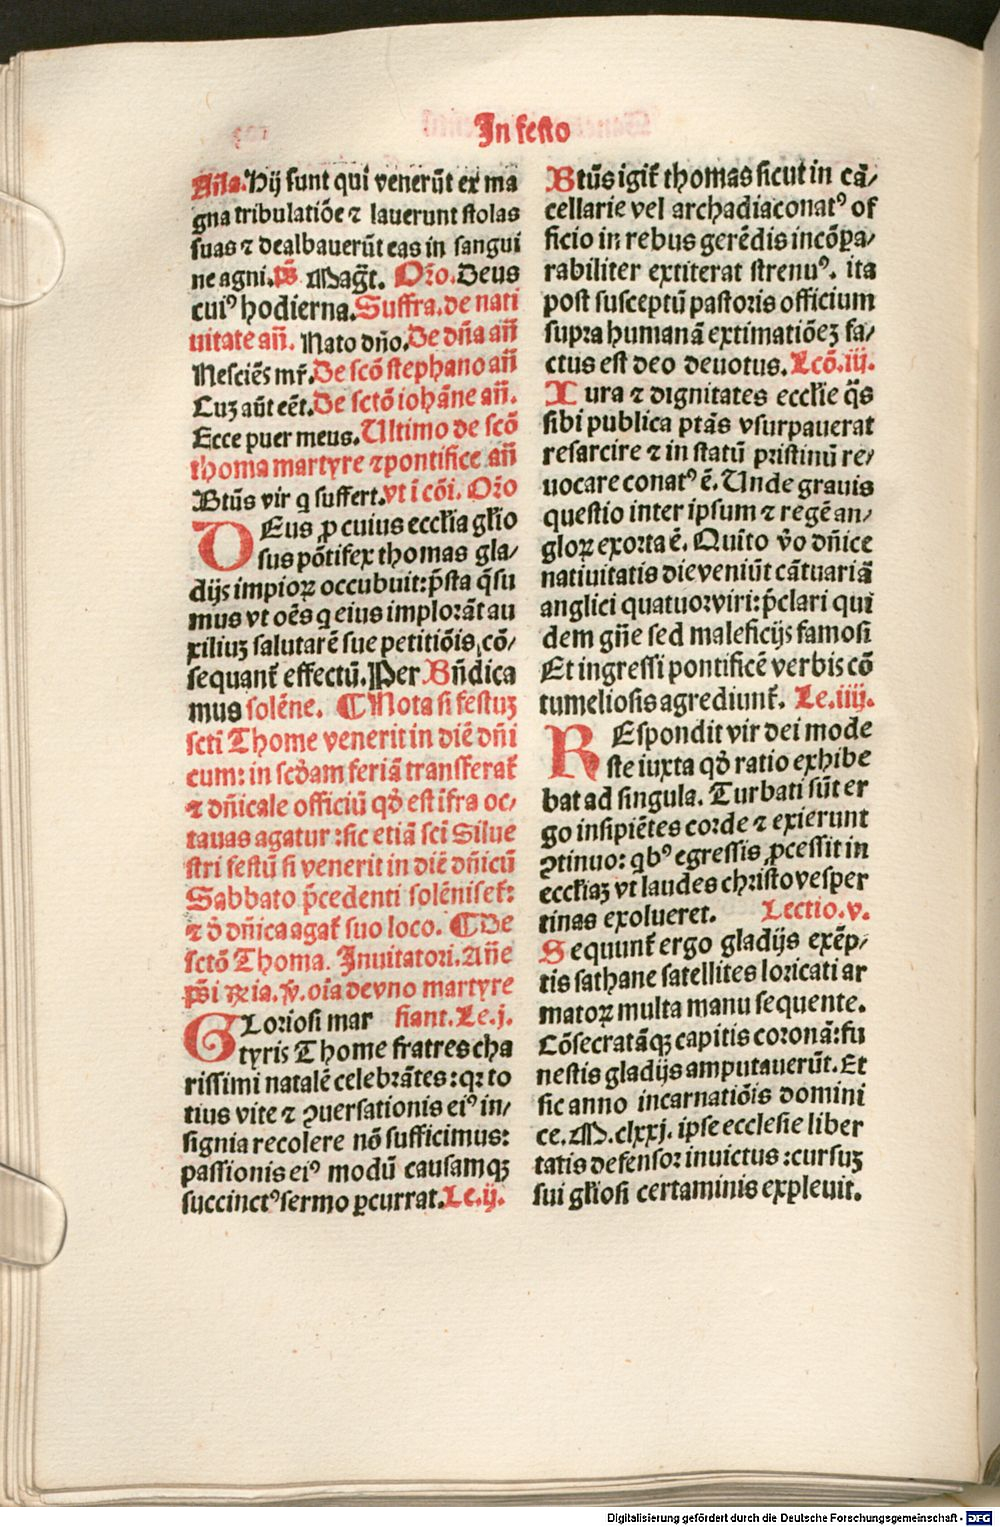 In festo
Aña. Hij sunt qui venerūt ex ma
gna tribulatiōe ⁊ lauerunt stolas
suas ⁊ dealbauerūt eas in sangui
ne agni. Mag̃t. Or̃o. Deus
cuiꝰ hodierna. Suffra. de nati
uitate añ. Nato dño. De dña añ
Nesciēs mr̄. De scō stephano añ
Cuꝫ aūt eēt. De sctō iohāne añ.
Ecce puer meus. Ultimo de scō
thoma martyre ⁊ pontifice añ
Btūs vir q suffert. vt ī cōi. Or̃o
DEus ꝓ cuius eccľia gľio
sus pōtifex thomas gla⸗
dijs impioꝝ occubuit: p̄sta q̄su
mus vt oēs q eius implorāt au
xiliuꝫ salutarē sue petitiōis, cō⸗
sequant̃ effectū. Per Bñdica
mus solēne. ¶ Nota si festuꝫ
scti Thome venerit in diē dñi
cum: in scd̾am feriā transferat̃
⁊ dñicale officiū qd̾ est īfra oc⸗
tauas agatur: sic etiā scī Silue
stri festū si venerit in diē dñicū
Sabbato p̄cedenti solēniset̃:
⁊ d̾ dñica agat̃ suo loco. ¶ De
sctō Thoma. Inuitatori. Añe
p̄si ⁊ ꝶia. ꝟ. oīa de vno martyre
GLoriosi mar fiant. Le. j.
tyris Thome fratres cha
rissimi natalē celebrātes: qꝛ to
tius vite ⁊ ꝯuersationis eiꝰ in⸗
signia recolere nō sufficimus:
passionis eiꝰ modū causamqꝫ
succinctꝰ sermo ꝑcurrat. Le. ij.
Btūs igit̃ thomas sicut in cā⸗
cellarie vel archadiaconatꝰ of
ficio in rebus gerēdis incōꝑa⸗
rabiliter extiterat strenuꝰ. ita
post susceptū pastoris officium
supra humanā extimatiōeꝫ fa⸗
ctus est deo deuotus. Lcō. iij.
Iura ⁊ dignitates eccľie q̄s
sibi publica ptās vsurpauerat
resarcire ⁊ in statū pristinū re⸗
uocare conatꝰ ē. Unde grauis
questio inter ipsum ⁊ regē an⸗
gloꝝ exorta ē. Quīto v̾o dñice
natiuitatis die veniūt cātuariā
anglici quatuor viri: p̄clari qui
dem gñe sed maleficijs famosi
Et ingressi pontificē verbis cō
tumeliosis agrediunt̃. Le. iiij.
REspondit vir dei mode
ste iuxta qd̾ ratio exhibe
bat ad singula. Turbati sūt er
go insipiētes corde ⁊ exierunt
ꝯtinuo: qbꝰ egressis ꝓcessit in
eccľiaꝫ vt laudes christo vesper
tinas exolueret. Lectio. v.
Sequunt̃ ergo gladijs exēp⸗
tis sathane satellites loricati ar
matoꝝ multa manu sequente.
Cōsecratāqꝫ capitis coronā: fu
nestis gladijs amputauerūt. Et
sic anno incarnatiōis domini
ce. M. clxxj. ipse ecclesie liber
tatis defensor inuictus: cursuꝫ
sui gľiosi certaminis expleuit.
Digitalisierung gefördert durch die Deutsche Forschungsgemeinschaft - DFG